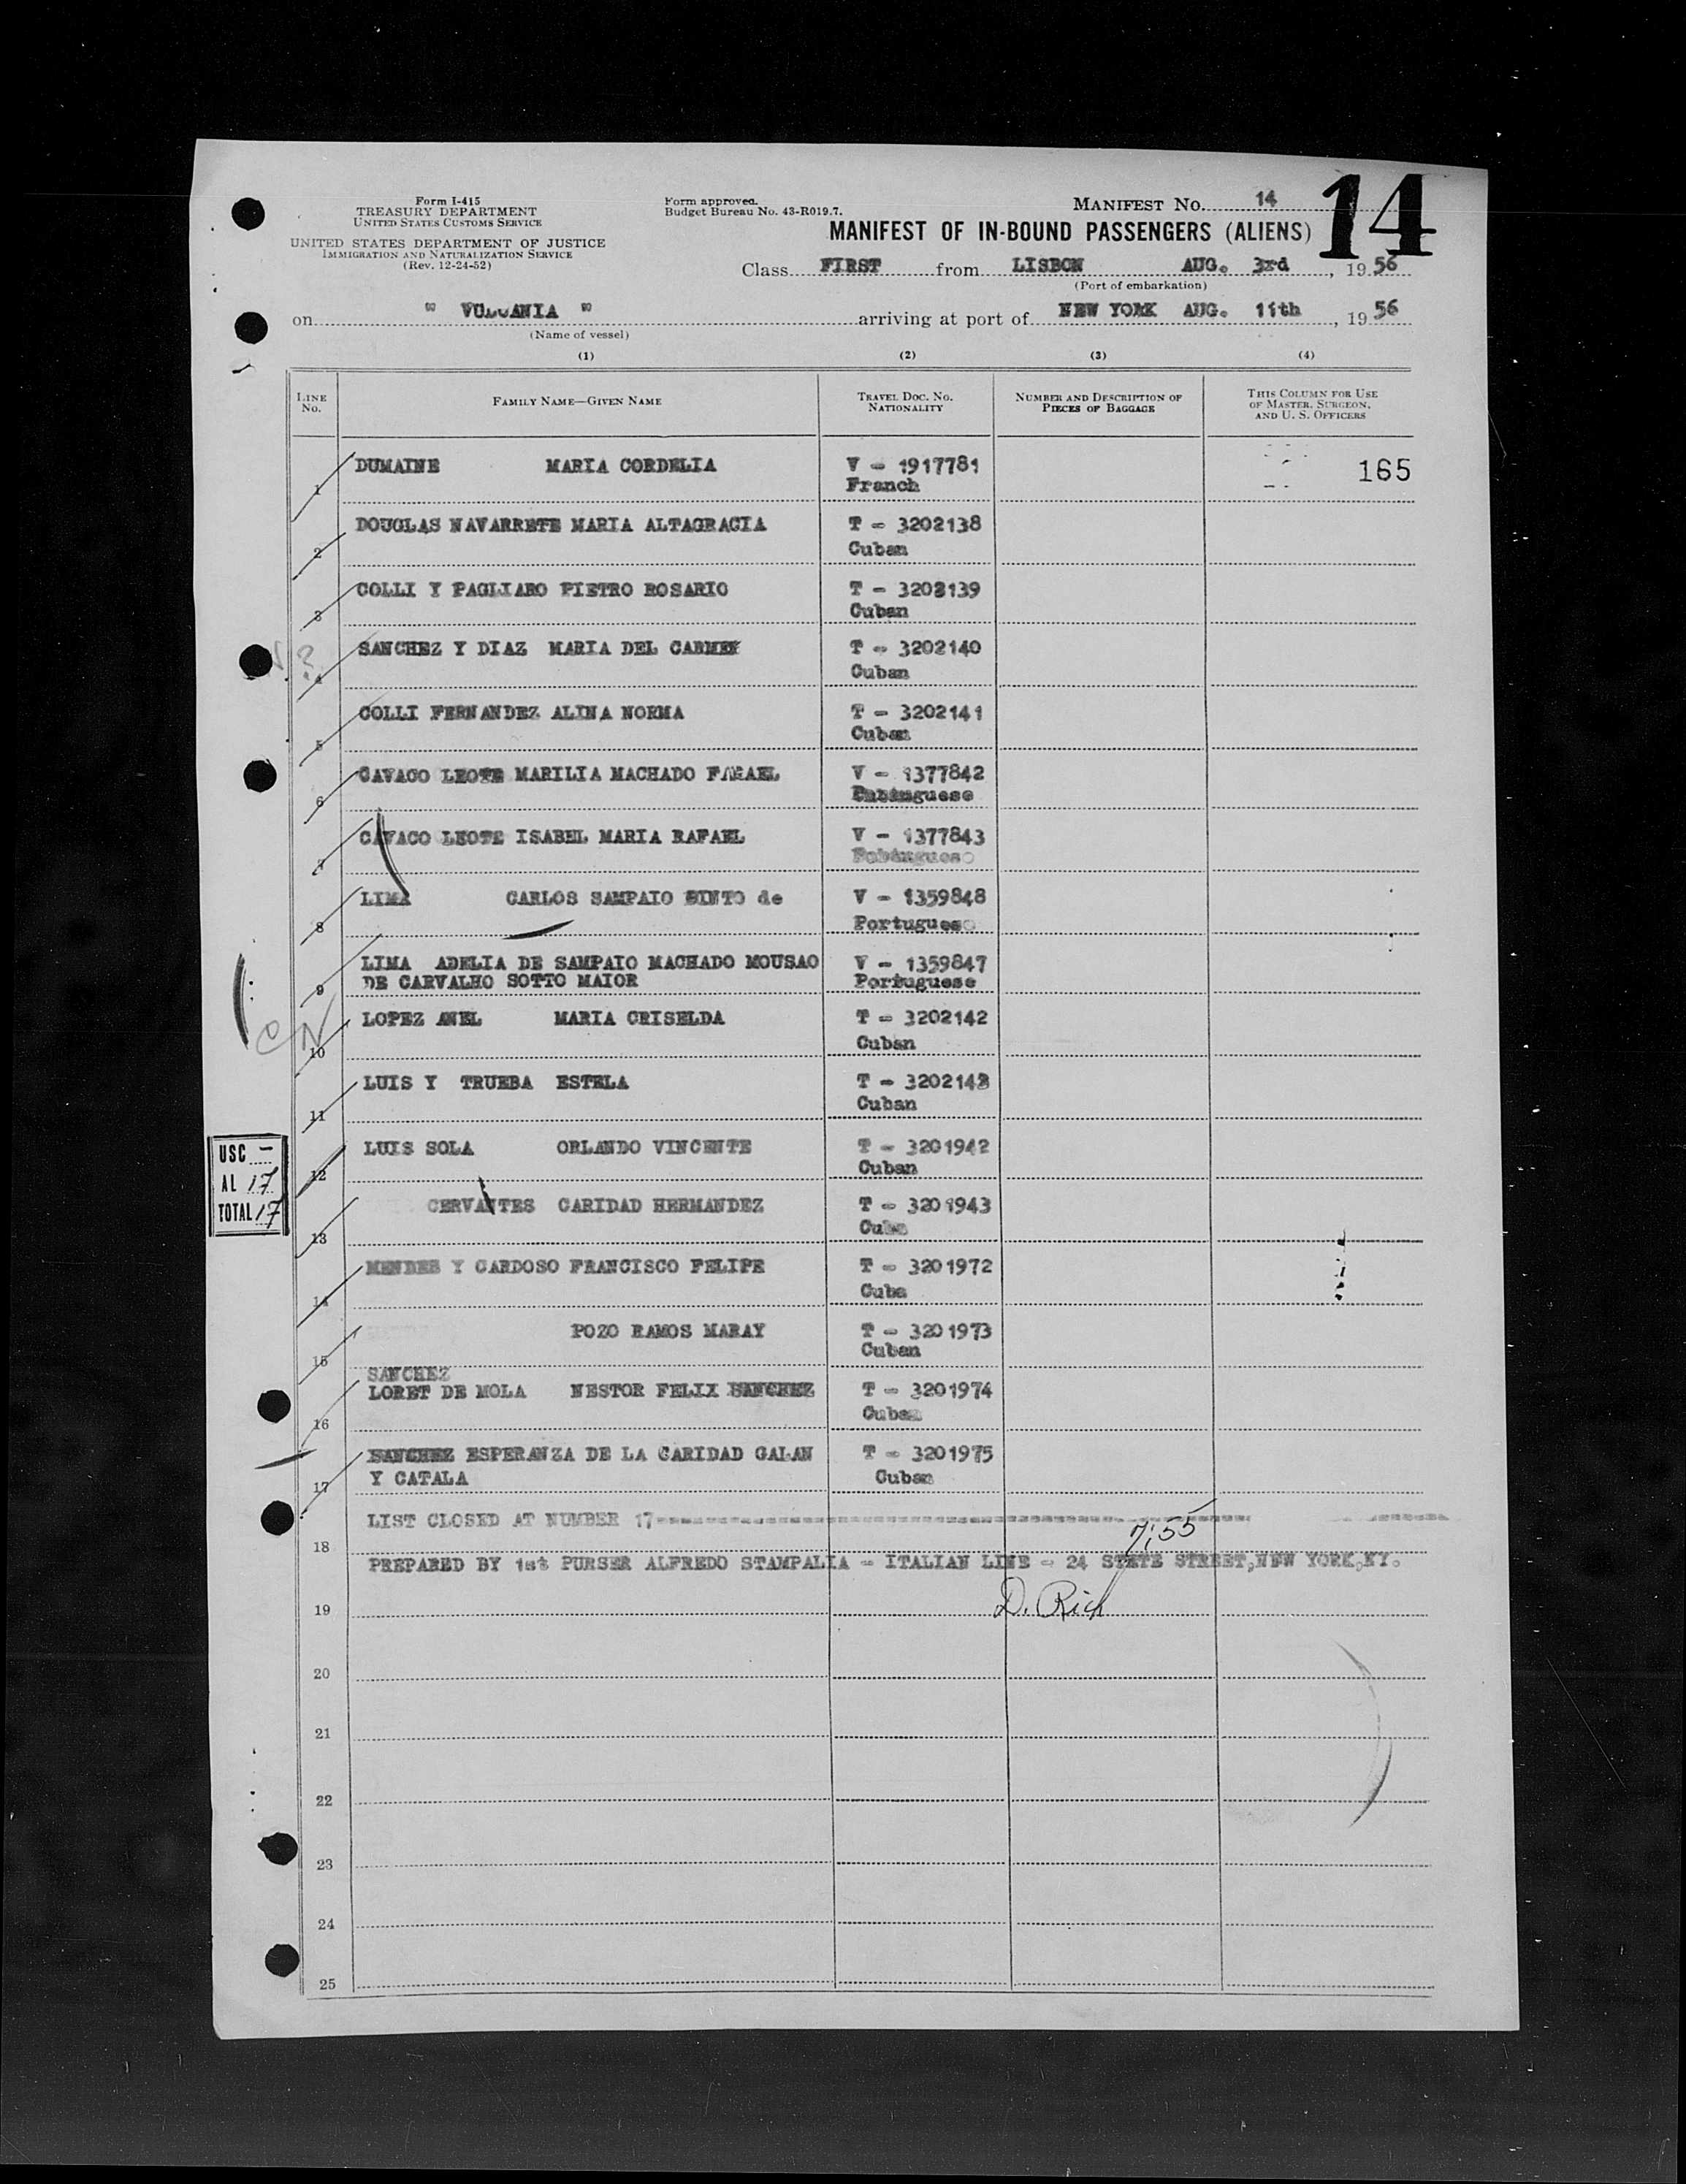 Form I-415
TREASURY DEPARTMENT
UNITED STATES CUSTOMS SERVICE
UNITED STATES DEPARTMENT OF JUSTICE
IMMIGRATION AND NATURALIZATION SERVICE
(Rev. 12-24-52)
Form approved.
Budget Bureau No. 43-R019.7.
MANIFEST No. 14
14
MANIFEST OF IN-BOUND PASSENGERS (ALIENS)
Class FIRST from LISBON AUG. 3rd, 1956
(Port of embarkation)
on " VULCANIA " arriving at port of NEW YORK AUG. 11th, 1956
(Name of vessel)
(1) (2) (3) (4)
LINE No. FAMILY NAME—GIVEN NAME TRAVEL DOC. No. NATIONALITY NUMBER AND DESCRIPTION OF PIECES OF BAGGAGE THIS COLUMN FOR USE OF MASTER, SURGEON, AND U. S. OFFICERS
1 DUMAINE MARIA CORDELIA V - 1917781 165
Franch
2 DOUGLAS NAVARRETE MARIA ALTAGRACIA T - 3202138
Cuban
3 COLLI Y PAGLIARO PIETRO ROSARIO T - 3202139
Cuban
?
4 SANCHEZ Y DIAZ MARIA DEL CARMEN T - 3202140
Cuban
5 COLLI FERNANDEZ ALINA NORMA T - 3202141
Cuban
6 CAVACO LEOTE MARILIA MACHADO V - 1377842
7 CAVACO LEOTE ISABEL MARIA RAFAEL V - 1377843
8 LIMA CARLOS SAMPAIO PINTO de V - 1359848
Portuguese
9 LIMA ADELIA DE SAMPAIO MACHADO MOUSAO V - 1359847
DE CARVALHO SOTTO MAIOR Portuguese
CN
10 LOPEZ ANEL MARIA CRISELDA T - 3202142
Cuban
11 LUIS Y TRUEBA ESTELA T - 3202143
Cuban
USC -
AL 17
TOTAL 17
12 LUIS SOLA ORLANDO VINCENTE T - 3201942
Cuban
13 CERVANTES CARIDAD HERMANDEZ T - 3201943
Cuba
14 MENDES Y CARDOSO FRANCISCO FELIPE T - 3201972
Cuba
15 POZO RAMOS MARAY T - 3201973
Cuban
SANCHEZ
16 LORET DE MOLA NESTOR FELIX SANCHEZ T - 3201974
Cuban
17 SANCHEZ ESPERANZA DE LA CARIDAD GALAN T - 3201975
Y CATALA Cuban
LIST CLOSED AT NUMBER 17
7:55
18
PREPARED BY 1st PURSER ALFREDO STAMPALIA - ITALIAN LINE - 24 STETE STREET, NEW YORK, NY.
D. Rich
19
20
21
22
23
24
25